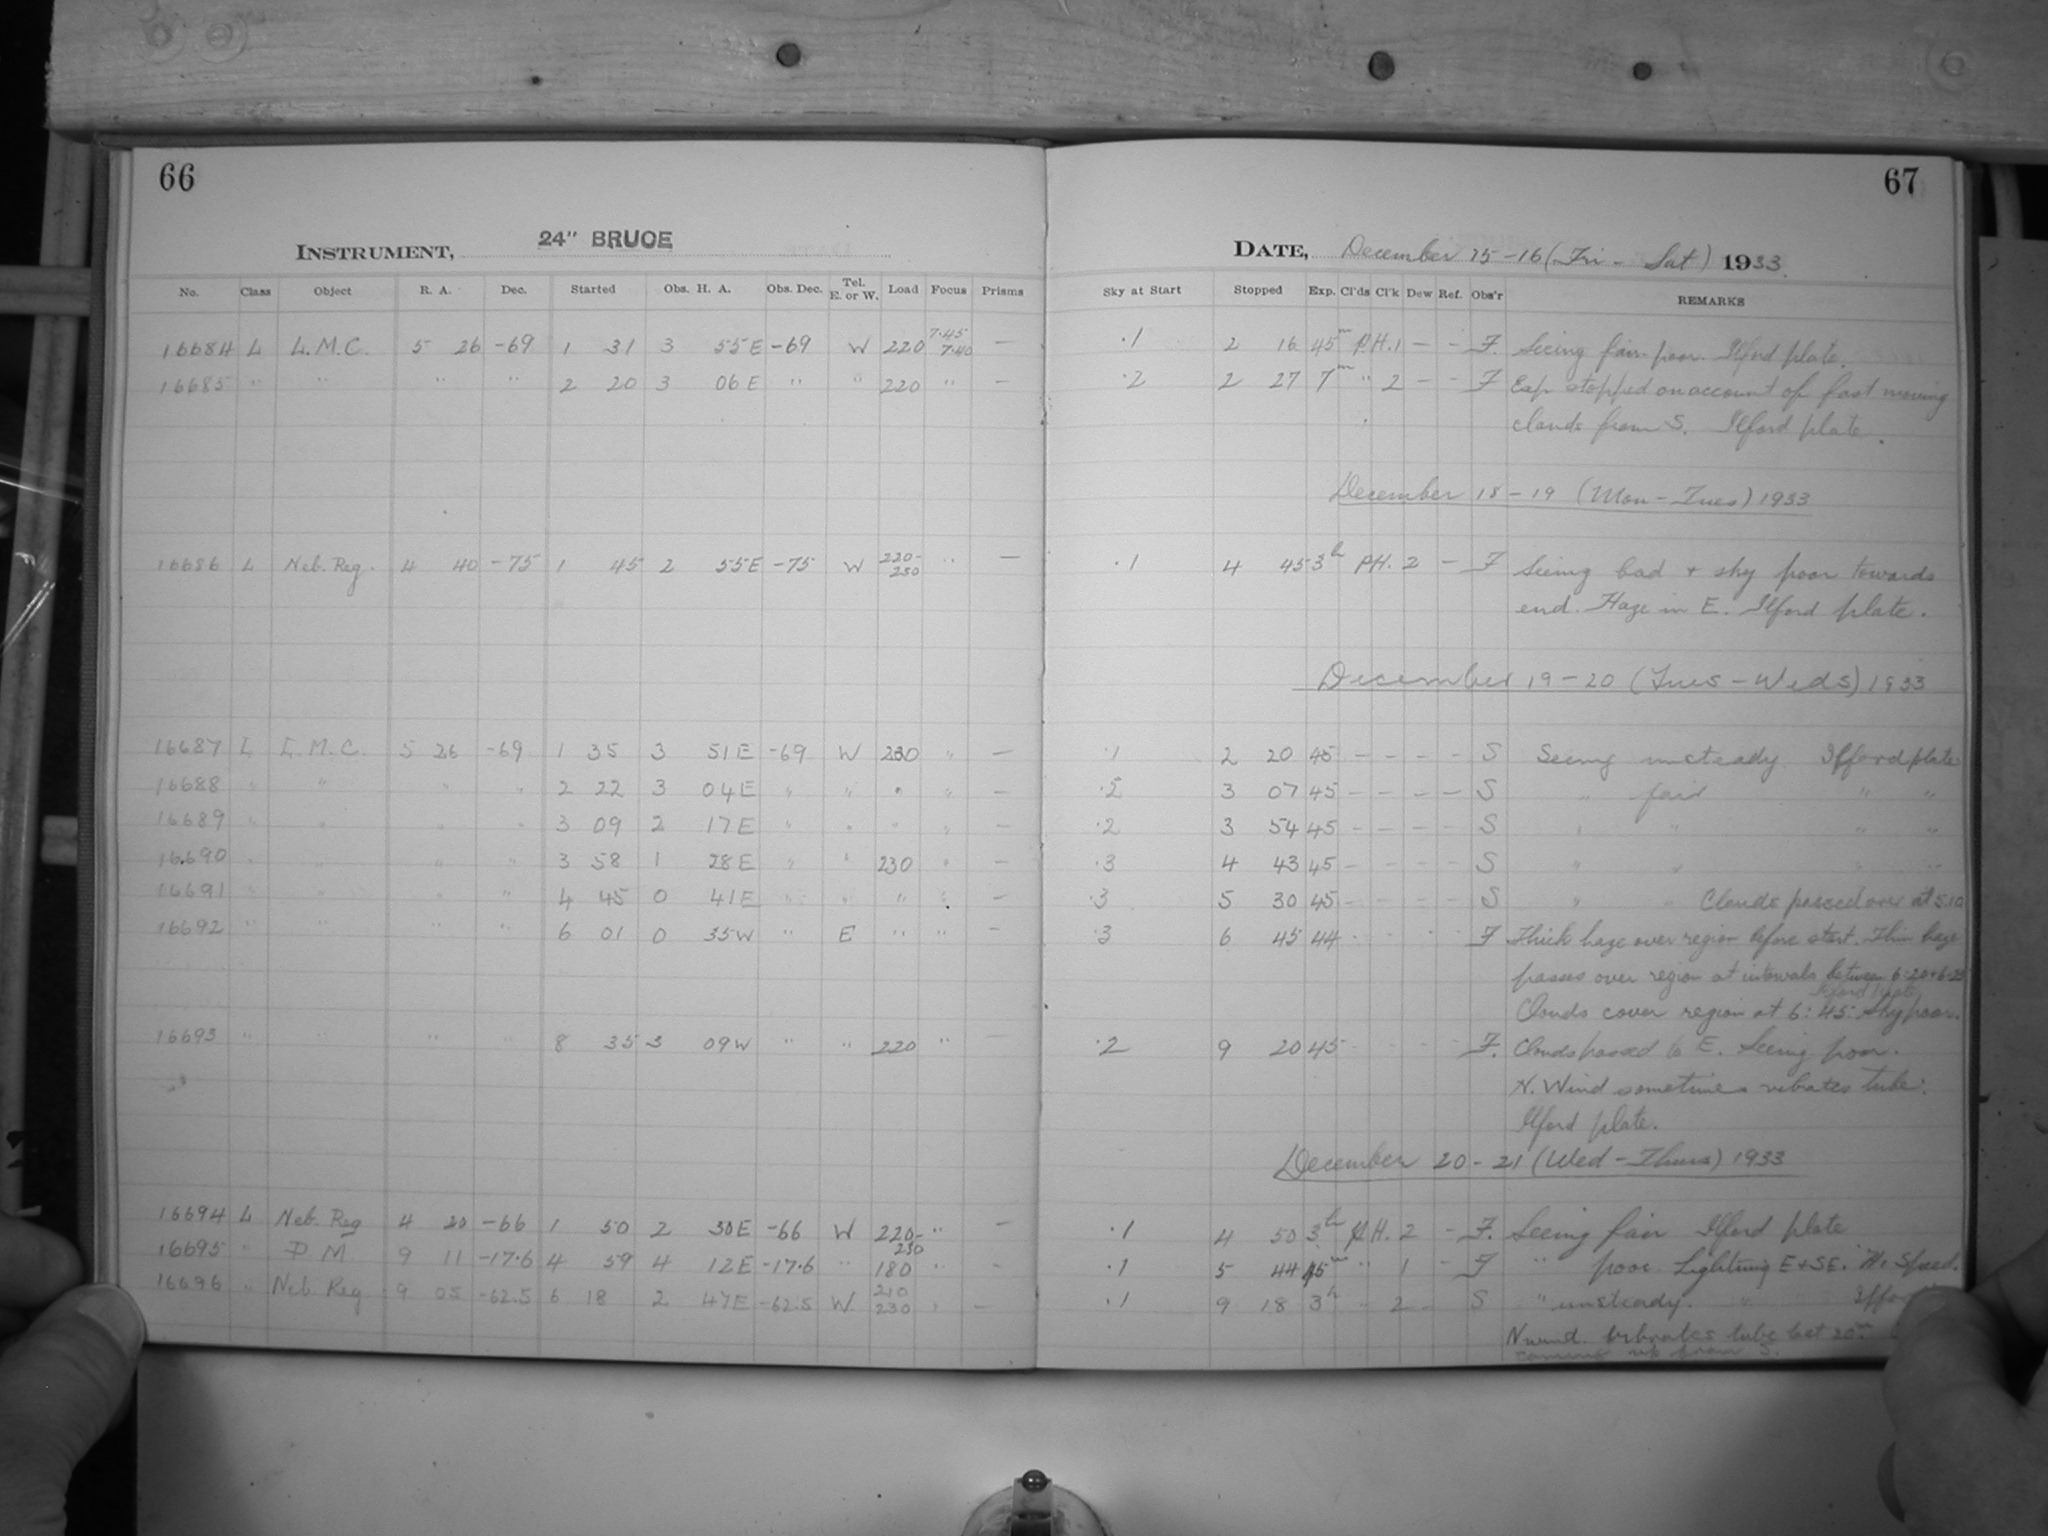 66
INSTRUMENT, 24" BRUCE
No. Class Object R. A. Dec. Started Obs. H. A. Obs. Dec. Tel. E. or W. Load Focus Prisms
16684 L L.M.C. 5 26 -69 1 31 3 55E -69 W 220 7.45 7.40 —
16685 " " " " 2 20 3 06E " " 220 " —
16686 L Neb. Reg. 4 40 -75 1 45 2 55E -75 W 220- 230 " —
16687 L L.M.C. 5 26 -69 1 35 3 51E -69 W 230 " —
16688 " " " " 2 22 3 04E " " " " —
16689 " " " " 3 09 2 17E " " " " —
16690 " " " " 3 58 1 28E " " 230 " —
16691 " " " " 4 45 0 41E " " " " —
16692 " " " " 6 01 0 35W " E " " —
16693 " " " " 8 35 3 09W " " 220 " —
16694 L Neb. Reg 4 20 -66 1 50 2 30E -66 W 220- 230 " —
16695 " D M. 9 11 -17.6 4 59 4 12E -17.6 " 180 " -
16696 " Neb. Reg 9 05 -62.5 6 18 2 47E -62.5 W 210 230 " —
67
DATE, December 15-16 (Fri - Sat) 1933
Sky at Start Stopped Exp. Cl'ds Cl'k Dew Ref. Obs'r REMARKS
.1 2 16 45m P.H. 1 - - - F. Seeing fair-poor. Ilford plate.
.2 2 27 7m " 2 - - F Exp stopped on account of fast moving
clouds from S. Ilford plate.
December 18-19 (Mon-Tues) 1933
.1 4 45 3h P.H. 2 - F Seeing bad + sky poor towards
end. Haze in E. Ilford plate.
December 19-20 (Tues-Weds) 1933
.1 2 20 45 - - - - S Seeing unsteady Ilfford plate
.2 3 07 45 - - - - S " fair " "
.2 3 54 45 - - - - S " " " "
.3 4 43 45 - - - - S " " " "
.3 5 30 45 - - - - S " " Clouds passed over at 5.10
.3 6 45 44 F Thick haze over region before start. Thin haze
passes over region at intervals between 6:20+6:25
Ilford Plate
Clouds cover region at 6:45. Sky poor.
.2 9 20 45 F. Clouds passed to E. Seeing poor.
N. Wind sometimes vibrates tube.
Ilford plate.
December 20-21 (Wed-Thurs) 1933
.1 4 50 3h P.H. 2 - F. Seeing fair Ilford plate
.1 5 44 45m " 1 - F " poor. Lightning E+SE. Hi Speed.
.1 9 18 3h " 2 - S " unsteady. "
N wind. vibrates tube last 20m
coming up from S.